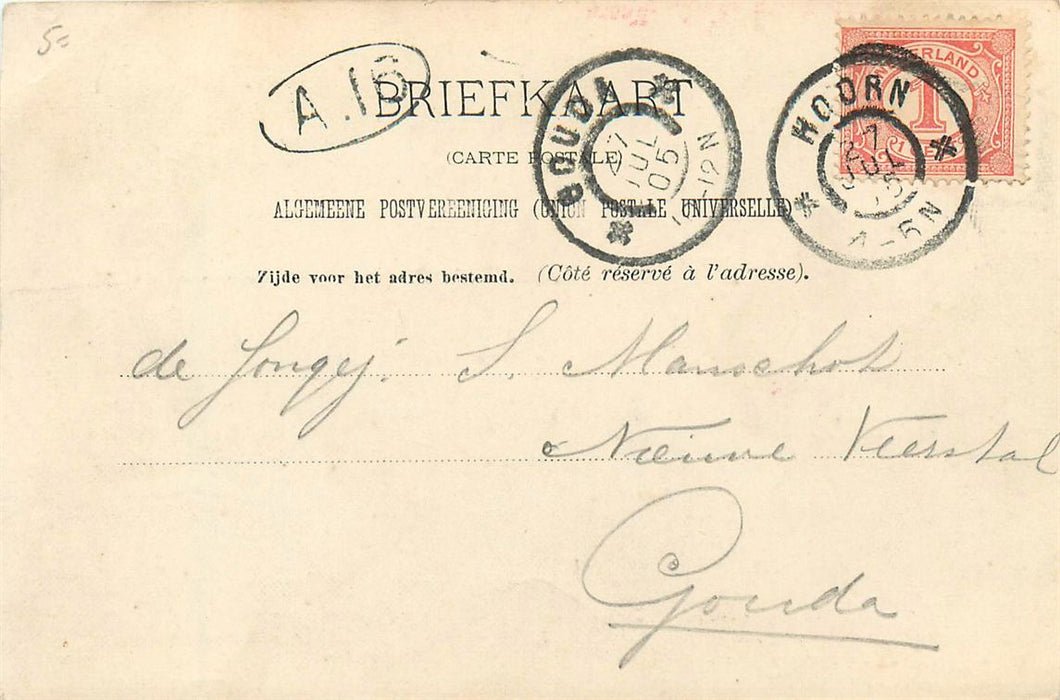 5=
A.16
BRIEFKAART
(CARTE POSTALE)
ALGEMEENE POSTVEREENIGING (UNION POSTALE UNIVERSELLE)
Zijde voor het adres bestemd. (Côté réservé à l'adresse).
GOUDA
JUL
05
-12N
NEDERLAND
1
CENT
HOORN
27
JUL
05
4-5N
de Jongej. S. Manschot
Nieuwe Veerstal
Gouda